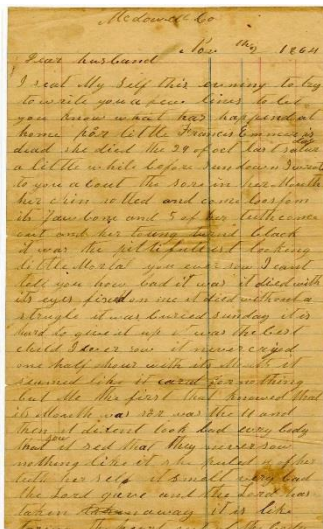 McDowell Co
Nov the 1864
Dear husband
I seat My Self this evening to try
to write you a few lines to let
you know what has hapend at
home poor little Francis Emmer is
dead she died the 29 of oct last satur
day
a little while before sundown I wrote
to you about the sore in her Mouth
her rotted and come loos from
its Jaw bone and 5 of her teeth come
out and her toung turnd black
it was the pittifulest looking
little Morsel you ever sow I cant
tell you how bad it was it died with
its eyes fixed on me it died without a
strugle it was buried sunday it is
hard to give it up it was the best
child I ever sow it never cryed
one half hour with its Mouth it
seemed like it card for nothing
but Me the first that I knowed that
its Mouth was sore was the 11 and
then it didont look bad every body
that sow it sed that they never sow
nothing like it she puled of her
teeth her self it smelt very bad
the Lord gave and the Lord has
taken away it is like